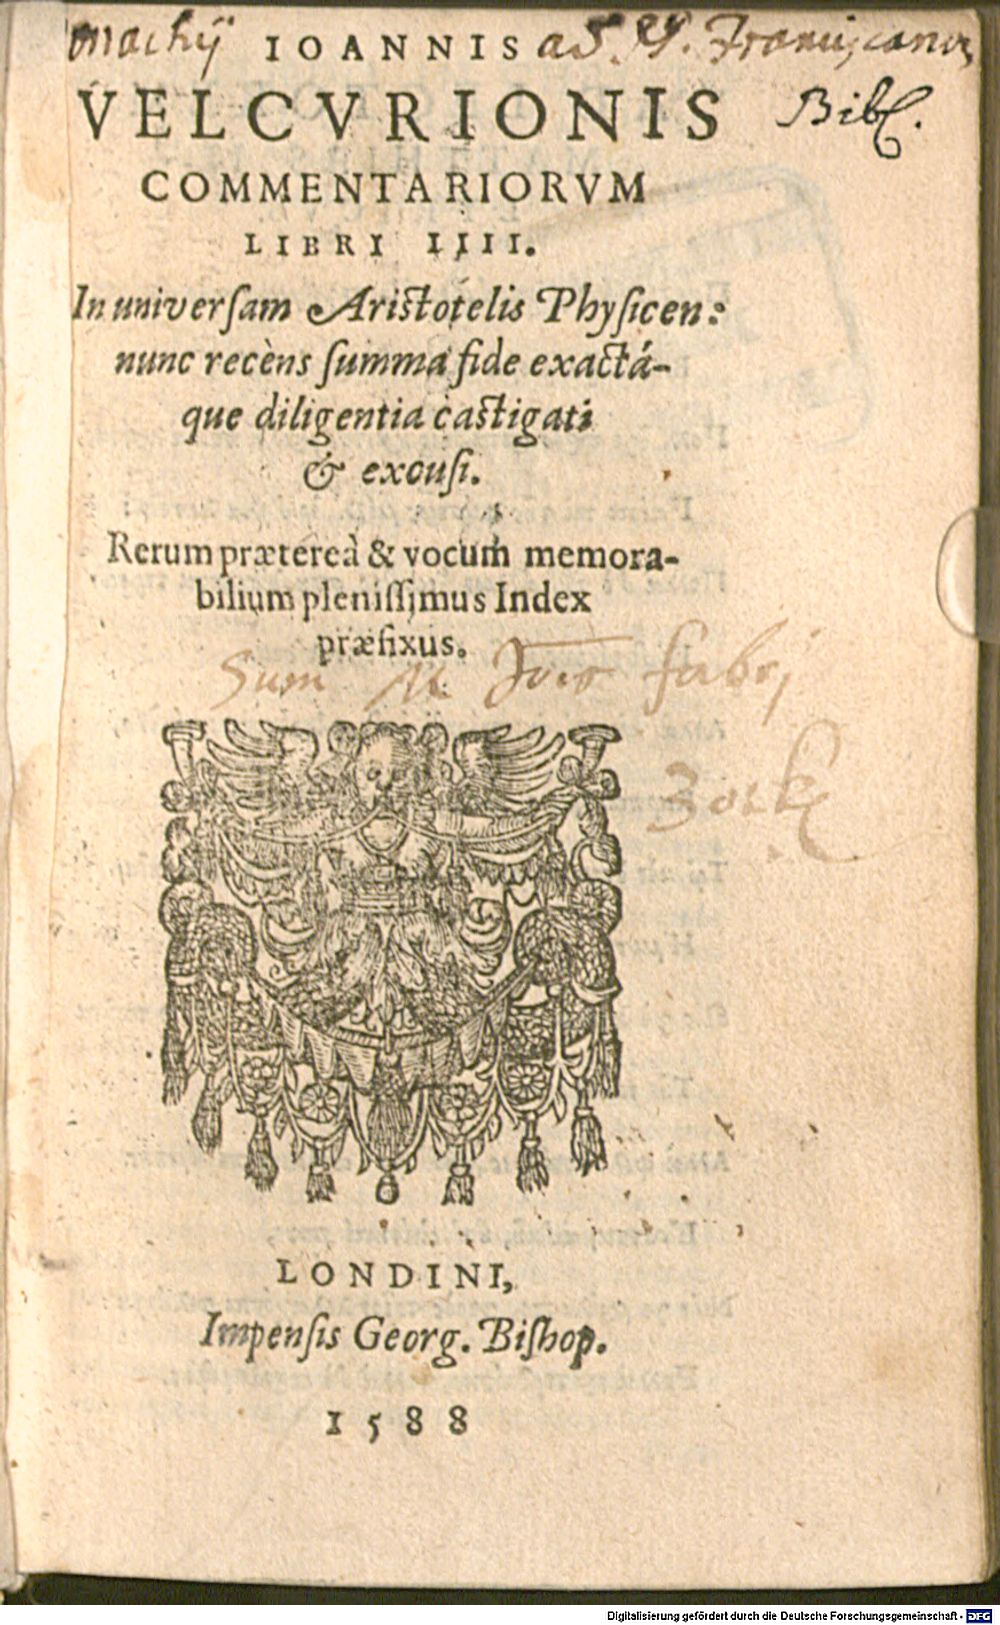 IOANNIS
VELCVRIONIS Bibl.
COMMENTARIORVM
LIBRI IIII.
In universam Aristotelis Physicen:
nunc recèns summa fide exactá-
que diligentia castigati
& excusi.
Rerum prætereà & vocum memora-
bilium plenissimus Index
præfixus.
Sum M
LONDINI,
Impensis Georg. Bishop.
1588
Digitalisierung gefördert durch die Deutsche Forschungsgemeinschaft - DFG